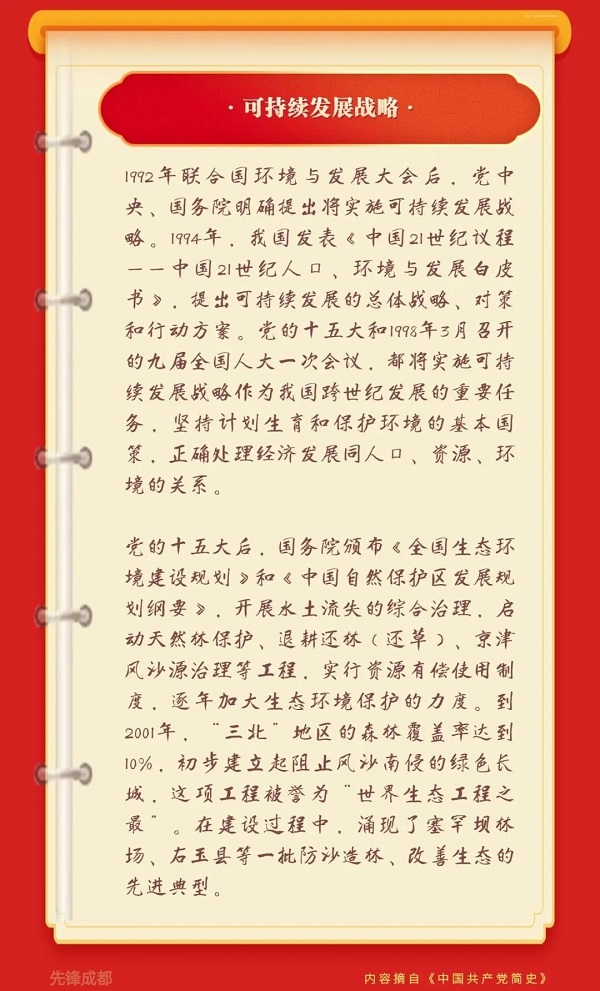 ·可持续发展战略·
1992年联合国环境与发展大会后，党中
央、国务院明确提出将实施可持续发展战
略。1994年，我国发表《中国21世纪议程
——中国21世纪人口、环境与发展白皮
书》，提出可持续发展的总体战略、对策
和行动方案。党的十五大和1998年3月召开
的九届全国人大一次会议，都将实施可持
续发展战略作为我国跨世纪发展的重要任
务，坚持计划生育和保护环境的基本国
策，正确处理经济发展同人口、资源、环
境的关系。
党的十五大后，国务院颁布《全国生态环
境建设规划》和《中国自然保护区发展规
划纲要》，开展水土流失的综合治理，启
动天然林保护、退耕还林（还草）、京津
风沙源治理等工程，实行资源有偿使用制
度，逐年加大生态环境保护的力度。到
2001年，“三北”地区的森林覆盖率达到
10%，初步建立起阻止风沙南侵的绿色长
城，这项工程被誉为“世界生态工程之
最”。在建设过程中，涌现了塞罕坝林
场、右玉县等一批防沙造林、改善生态的
先进典型。
先锋成都
内容摘自《中国共产党简史》